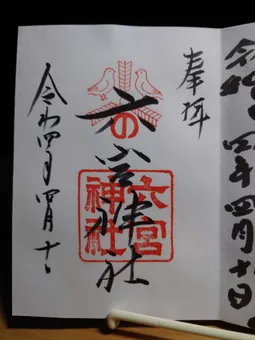 令和四年四月十日
奉拝
六の宮神社
六宮神社
令和四年四月十日